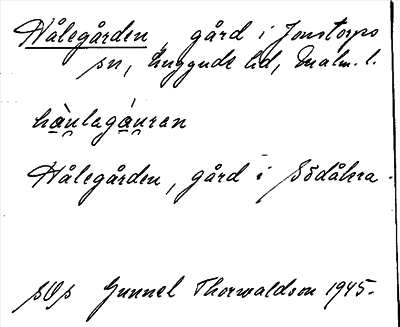 Hålegården, gård i Jonstorps
sn, Luggude hd, Malm. l.
hàu̯lagáu̯ran
Hålegården, gård i Södåkra.
Gunnel Thorwaldson 1945.